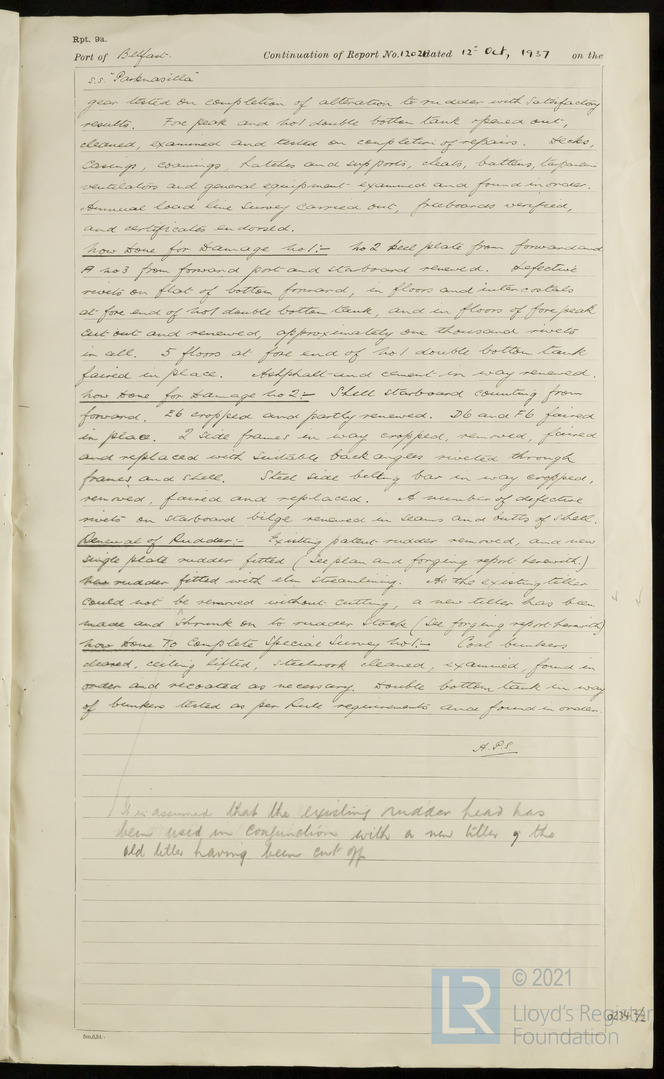 Rpt. 9a.
Port of Belfast. Continuation of Report No. 12021 dated 12th Oct, 1937 on the
s.s. "Parknasilla"
gear tested on completion of alteration to rudder with satisfactory
results. Fore peak and No1 double bottom tank opened out,
cleaned, examined and tested on completion of repairs. Decks,
Casings, coamings, hatches and supports, cleats, battens, tarpaulins
ventilators and general equipment examined and found in order.
Annual load line survey carried out, freeboards verified,
and certificates endorsed.
Now Done for Damage No1:- No2 keel plate from forward and
A No3 from forward port and starboard renewed. Defective
rivets on flat of bottom forward, in floors and intercostals
at fore end of No1 double bottom tank, and in floors of fore peak
cut out and renewed, approximately one thousand rivets
in all. 5 floors at fore end of No1 double bottom tank
faired in place. Ashphalt and cement in way renewed.
Now Done for Damage No2:- Shell starboard counting from
forward. E6 cropped and partly renewed. D6 and F6 faired
in place. 2 side frames in way cropped, removed, faired
and replaced with suitable back angles riveted through
frames and shell. Steel side belting bar in way cropped,
removed, faired and replaced. A number of defective
rivets on starboard bilge renewed in seams and butts of shell.
Renewal of Rudder:- Existing patent rudder removed, and new
single plate rudder fitted (See plan and forging report herewith.)
New rudder fitted with elm streamlining. As the existing tiller
could not be removed without cutting, a new tiller has been
made and shrunk on to rudder stock (See forging report herewith)
Now Done To Complete Special Survey No1:- Coal bunkers
cleared, ceiling lifted, steelwork cleaned, examined, found in
order and recoated as necessary. Double bottom tank in way
of bunkers tested as per Rule requirements and found in order
A.P.S.
It is assumed that the existing rudder head has
been used in conjunction with a new tiller & the
old tiller having been cut off
© 2021
LR
Lloyd's Register
Foundation